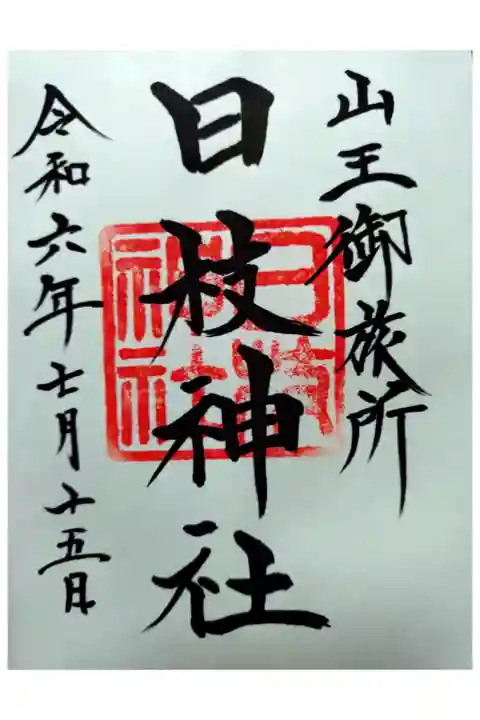 山王御旅所
日枝神社
令和六年七月十五日
日枝神社